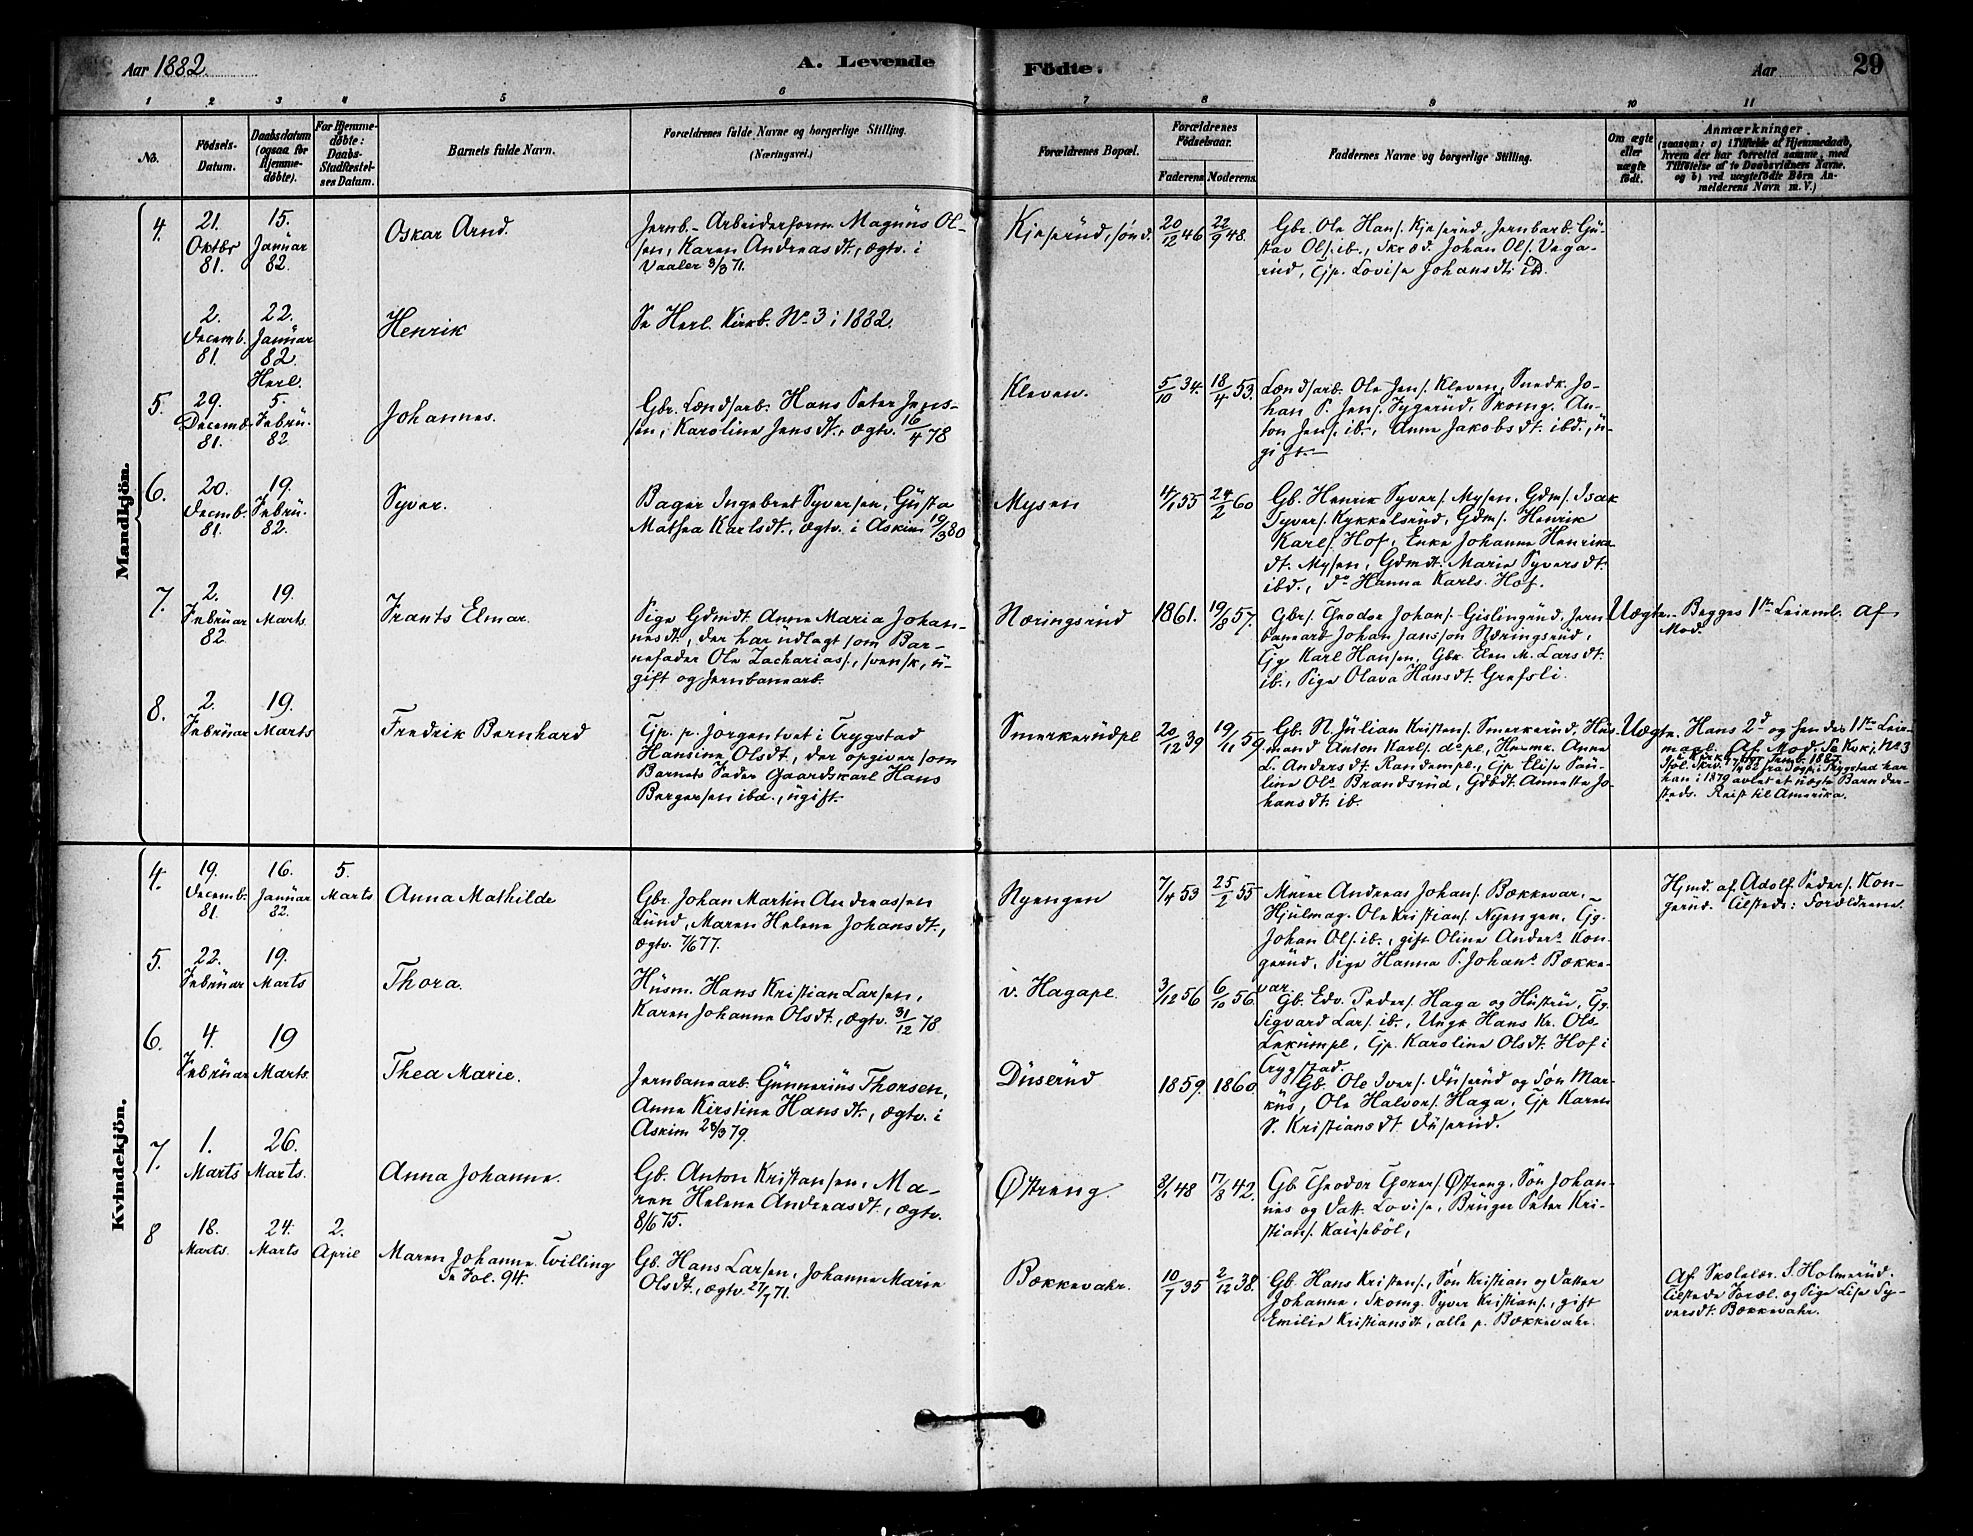 Aar 1882.
A. Levende
Fødte.
Aar
29
1 2 3 4 5 6 7 8 9 10 11
No.
Fødsels-
Datum.
Daabsdatum
(ogsaa for
Hjemme-
døbte).
For Hjemme-
døbte:
Daabs-
Stadfæstel-
ses Datum.
Barnets fulde Navn.
Forældrenes fulde Navne og borgerlige Stilling.
(Næringsvei.)
Forældrenes Bopæl.
Forældrenes
Fødselsaar.
Faderens. Moderens.
Faddernes Navne og borgerlige Stilling.
Om ægte
eller
uægte
født.
Anmærkninger.
(saasom: a) i Tilfælde af Hjemmedaab,
hvem der har forrettet samme, med
Tilføielse af to Daabsvidners Navne.
og b) ved uægtefødte Børn An-
melderens Navn m. V.)
Mandkjön.
4.
21.
Oktbr
81.
15.
Januar
82.
Oskar Arnd.
Jernb.- Arbeiderform. Magnus Ol-
sen, Karen Andreasdt., ægtv. i
Vaaler 3/3 71.
Kjeserud, sönd.
20/12 46
22/9 48.
Gbr. Ole Hans. Kjeserud, Jernbarb. Gu-
stav Ols. ib., Skræd. Johan Ols. Vega-
rud, Tjp. Lovise Johansdt. ib.
2.
Decemb.
81.
22.
Januar
82.
Herl.
Henrik
Se Herl. Kirkb. No 3 i 1882.
5.
29.
Decemb.
81.
5.
Febru.
82.
Johannes.
Gbr. Lændsarb. Hans Peter Jens-
sen, Karoline Jensdt., ægtv. 16/4 78
Kleven.
5/10 34.
18/4 53.
Lændsarb. Ole Jens. Kleven, Snedk. Jo-
han P. Jens. Sygerud, Skomg. An-
ton Jens. ib., Anne Jakobsdt. ibd., u-
gift.
6.
20.
Decmb.
81.
19.
Febru.
82.
Syver.
Bager Ingebret Syversen, Gusta
Mathea Karlsdt., ægtv. i Askim 19/3 80
Mysen
4/1 55
24/2 60
Gb. Henrik Syvers. Mysen, Gdms. Isak
Syvers. Kykkelsrud, Gdms. Henrik
Karls. Hof, Enke Johanne Henriks-
dt. Mysen, Gdmdt. Marie Syversdt.
ibd., do Hanna Karls. Hof.
7.
2.
Februar
82.
19.
Marts.
Frants Elmar.
Pige Gdmdt. Anne Maria Johan-
nesdt., der har udlagt som Bar-
nefader Ole Zacharias., svensk, u-
gift og Jernbanearb.
Næringsrud
1861.
19/8 57.
Gbr. Theodor Johans. Gislingrud, Jern-
banearb. Johan Jansson Næringsrud,
Tjg. Karl Hansen, Gbk. Elen M. Larsdt.
ib., Pige Olava Hansdt. Grefsli.
Uægte.
Begges 1ste Leierml. Af
Mod.
8.
2.
Februar
19.
Marts
Fredrik Bernhard
Tjp. p. Jörgentvet i Trygstad
Hansine Olsdt., der opgiver som
Barnets Fader Gaardskarl Hans
Bergersen ibd., ugift.
Smerkerudpl
20/12 39
19/11 59.
Gb. N. Julian Kristens. Smerkerud, Hus-
mand Anton Karls. do pl., Husmk. Anne
L. Andersdt. Randempl., Tjp Elise Pau-
line Ols Brandsrud, Gdbdt. Annette Jo-
hansdt. ib.
Uægte.
Hans 2d og hendes 1ste Leier-
maal. Af Mod.
han i 1879 avlet et uægte Barn der-
steds. Reist til Amerika.
Kvindekjön.
4.
19.
Decemb.
81.
16.
Januar
82.
5.
Marts
Anna Mathilde
Gbr. Johan Martin Andreassen
Lund, Maren Helene Johansdt.,
ægtv. 7/6 77.
Nyengen
7/4 53
25/2 55
Murer Andreas Johans. Bækkevar.,
Hjulmag. Ole Kristians. Nyengen, Tjg.
Johan Ols. ib., gift Oline Anders Kon-
gerud, Pige Hanna P. Johans Bække-
var.
Hjmd. af Adolf Peders. Kon-
gerud. Tilstede: Forældrene.
5.
22.
Februar
19.
Marts
Thora.
Husm. Hans Kristian Larsen,
Karen Johanne Olsdt., ægtv. 31/12 78.
v. Hagapl.
3/12 56
6/10 56.
Gb. Edv. Peders. Haga og Hustru, Tjg.
Sigvard Lars. ib., Ungk Hans Kr. Ols.
Lekumpl., Tjp. Karoline Olsdt. Hof i
Trygstad.
6.
4.
Februar
19
Marts.
Thea Marie.
Jernbanearb. Gunnerius Thorsen,
Anne Kirstine Hansdt., ægtv. i
Askim 28/3 79.
Duserud
1859.
1860.
Gb. Ole Ivers. Duserud og Sön Mar-
kus, Ole Halvors. Haga, Tjp Karen
S. Kristiansdt. Duserud.
7.
1.
Marts
26.
Marts.
Anna Johanne.
Gb. Anton Kristansen, Ma-
ren Helene Andreasdt., ægtv.
8/6 75.
Østreng.
3/1 48
17/8 42.
Gb. Theodor Thores. Østreng, Sön Johan-
nes og Datt. Lovise, Bruger Peter Kri-
stians. Kauseböl,
8
18.
Marts.
24.
Marts
2.
April
Maren Johanne. Tvilling
Se Fol. 94.
Gb. Hans Larsen, Johanne Marie
Olsdt., ægtv. 27/7 71.
Bækkevahr.
10/7 35
2/12 38.
Gb. Hans Kristens., Sön Kristian og Datter
Johanne, Skomg. Syver Kristians., gift
Emilie Kristiansdt., alle p. Bækkevahr.
Af Skolelær. S. Holmerud.
Tilstede Foræl. og Pige Lise Sy-
versdt. Bækkevahr.